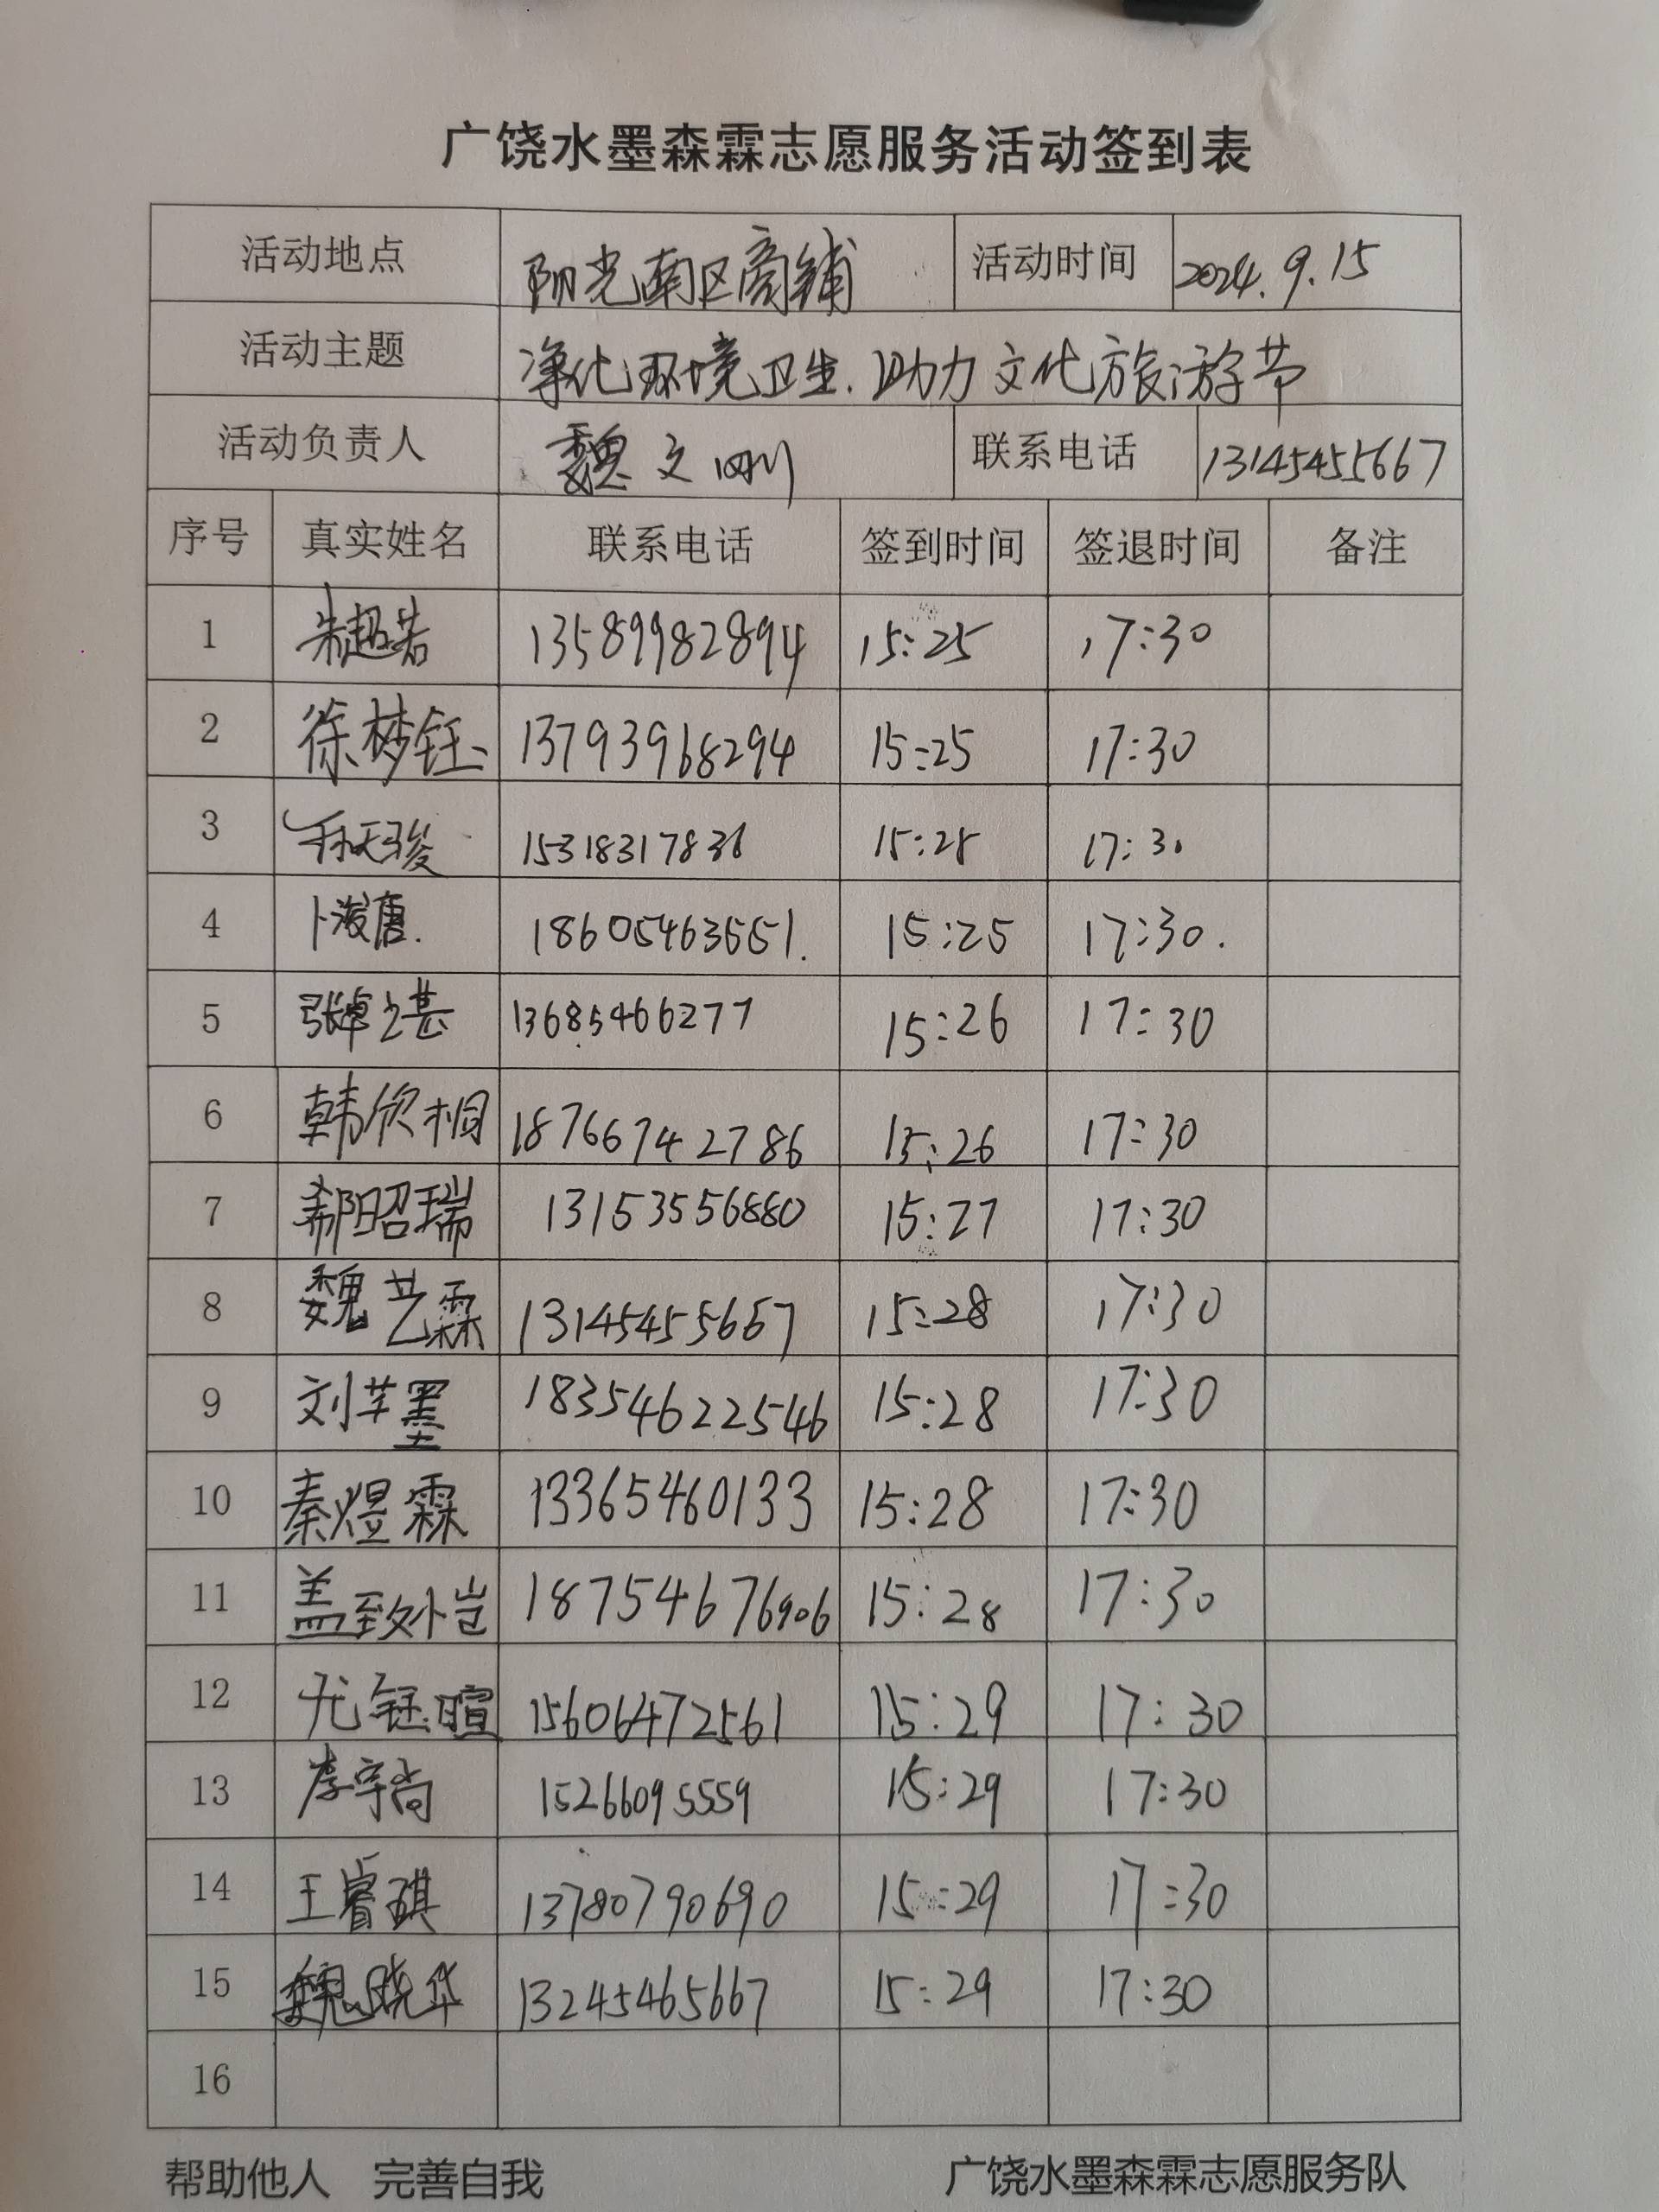 广饶水墨森霖志愿服务活动签到表
活动地点 阳光南区商铺 活动时间 2024.9.15
活动主题 净化环境卫生.助力文化旅游节
活动负责人 魏文刚 联系电话 13145455667
序号 真实姓名 联系电话 签到时间 签退时间 备注
1 朱超若 13589982894 15:25 17:30
2 徐梦钰 13793968294 15:25 17:30
3 15318317836 15:28 17:30
4 卜浚唐. 18605463551. 15:25 17:30.
5 张卓之甚 13685466277 15:26 17:30
6 韩欣桐 18766742786 15:26 17:30
7 昭瑞 13153556880 15:27 17:30
8 魏艺霖 13145455667 15:28 17:30
9 刘芊墨 18354622546 15:28 17:30
10 秦煜霖 13365460133 15:28 17:30
11 盖致外岂 18754676906 15:28 17:30
12 尤钰暄 15606472561 15:29 17:30
13 李宇尚 15266095559 15:29 17:30
14 王睿琪 13780790690 15:29 17:30
15 魏晓华 13245465667 15:29 17:30
16
帮助他人 完善自我 广饶水墨森霖志愿服务队